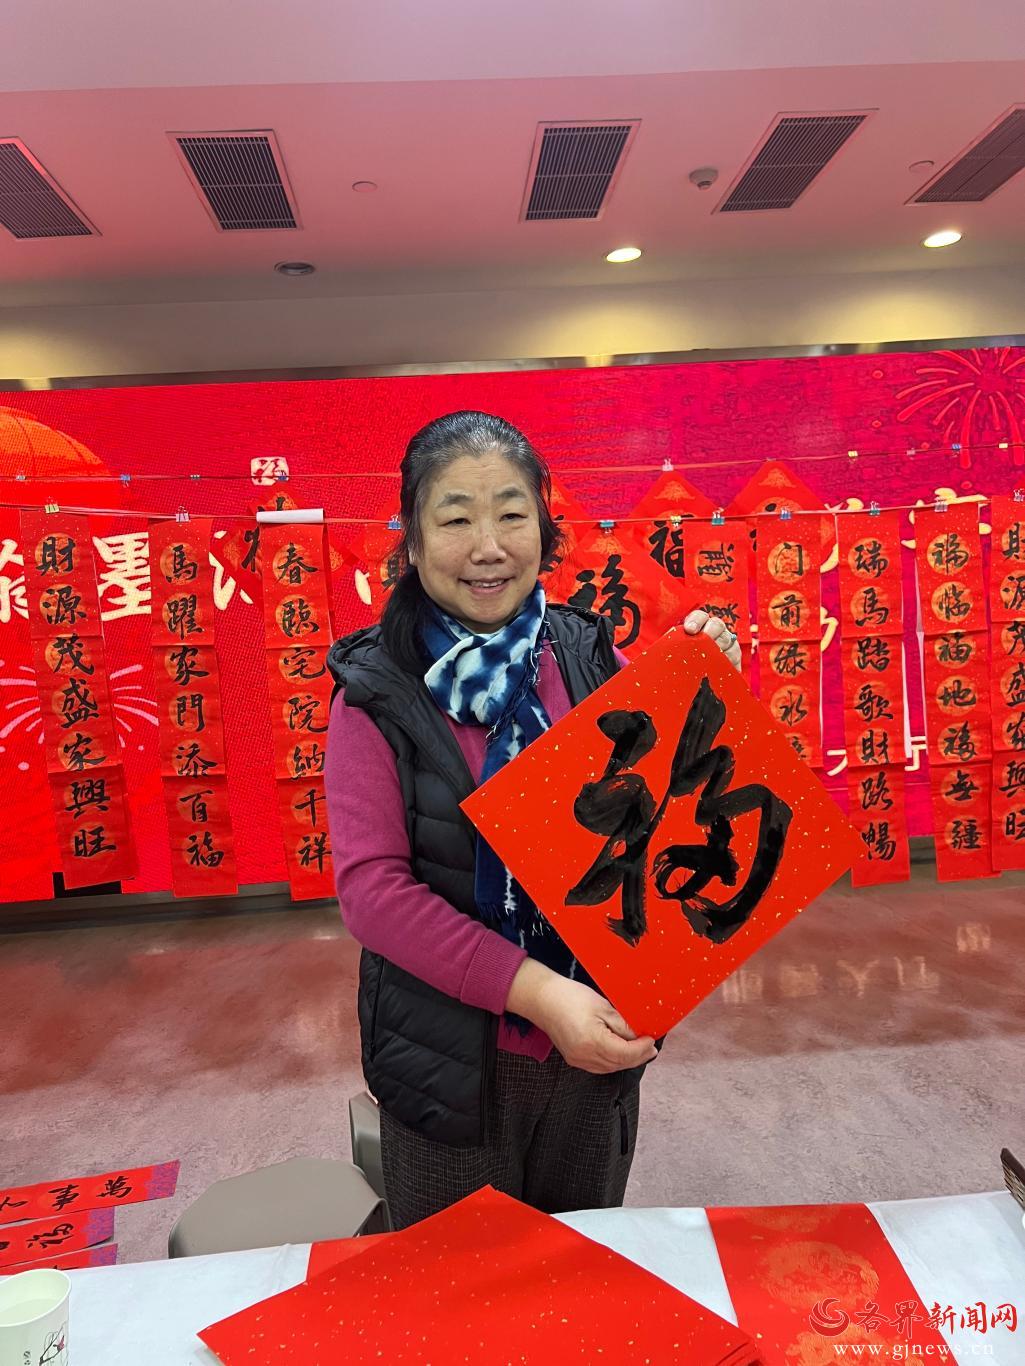 翰墨
財源茂盛家興旺
馬躍家門添百福
春臨宅院納千祥
福
福
福
門前綠水
瑞馬踏歌財路暢
福臨福地福無疆
財源茂盛家興旺
萬事
福
各界新闻网
www.gjnews.cn